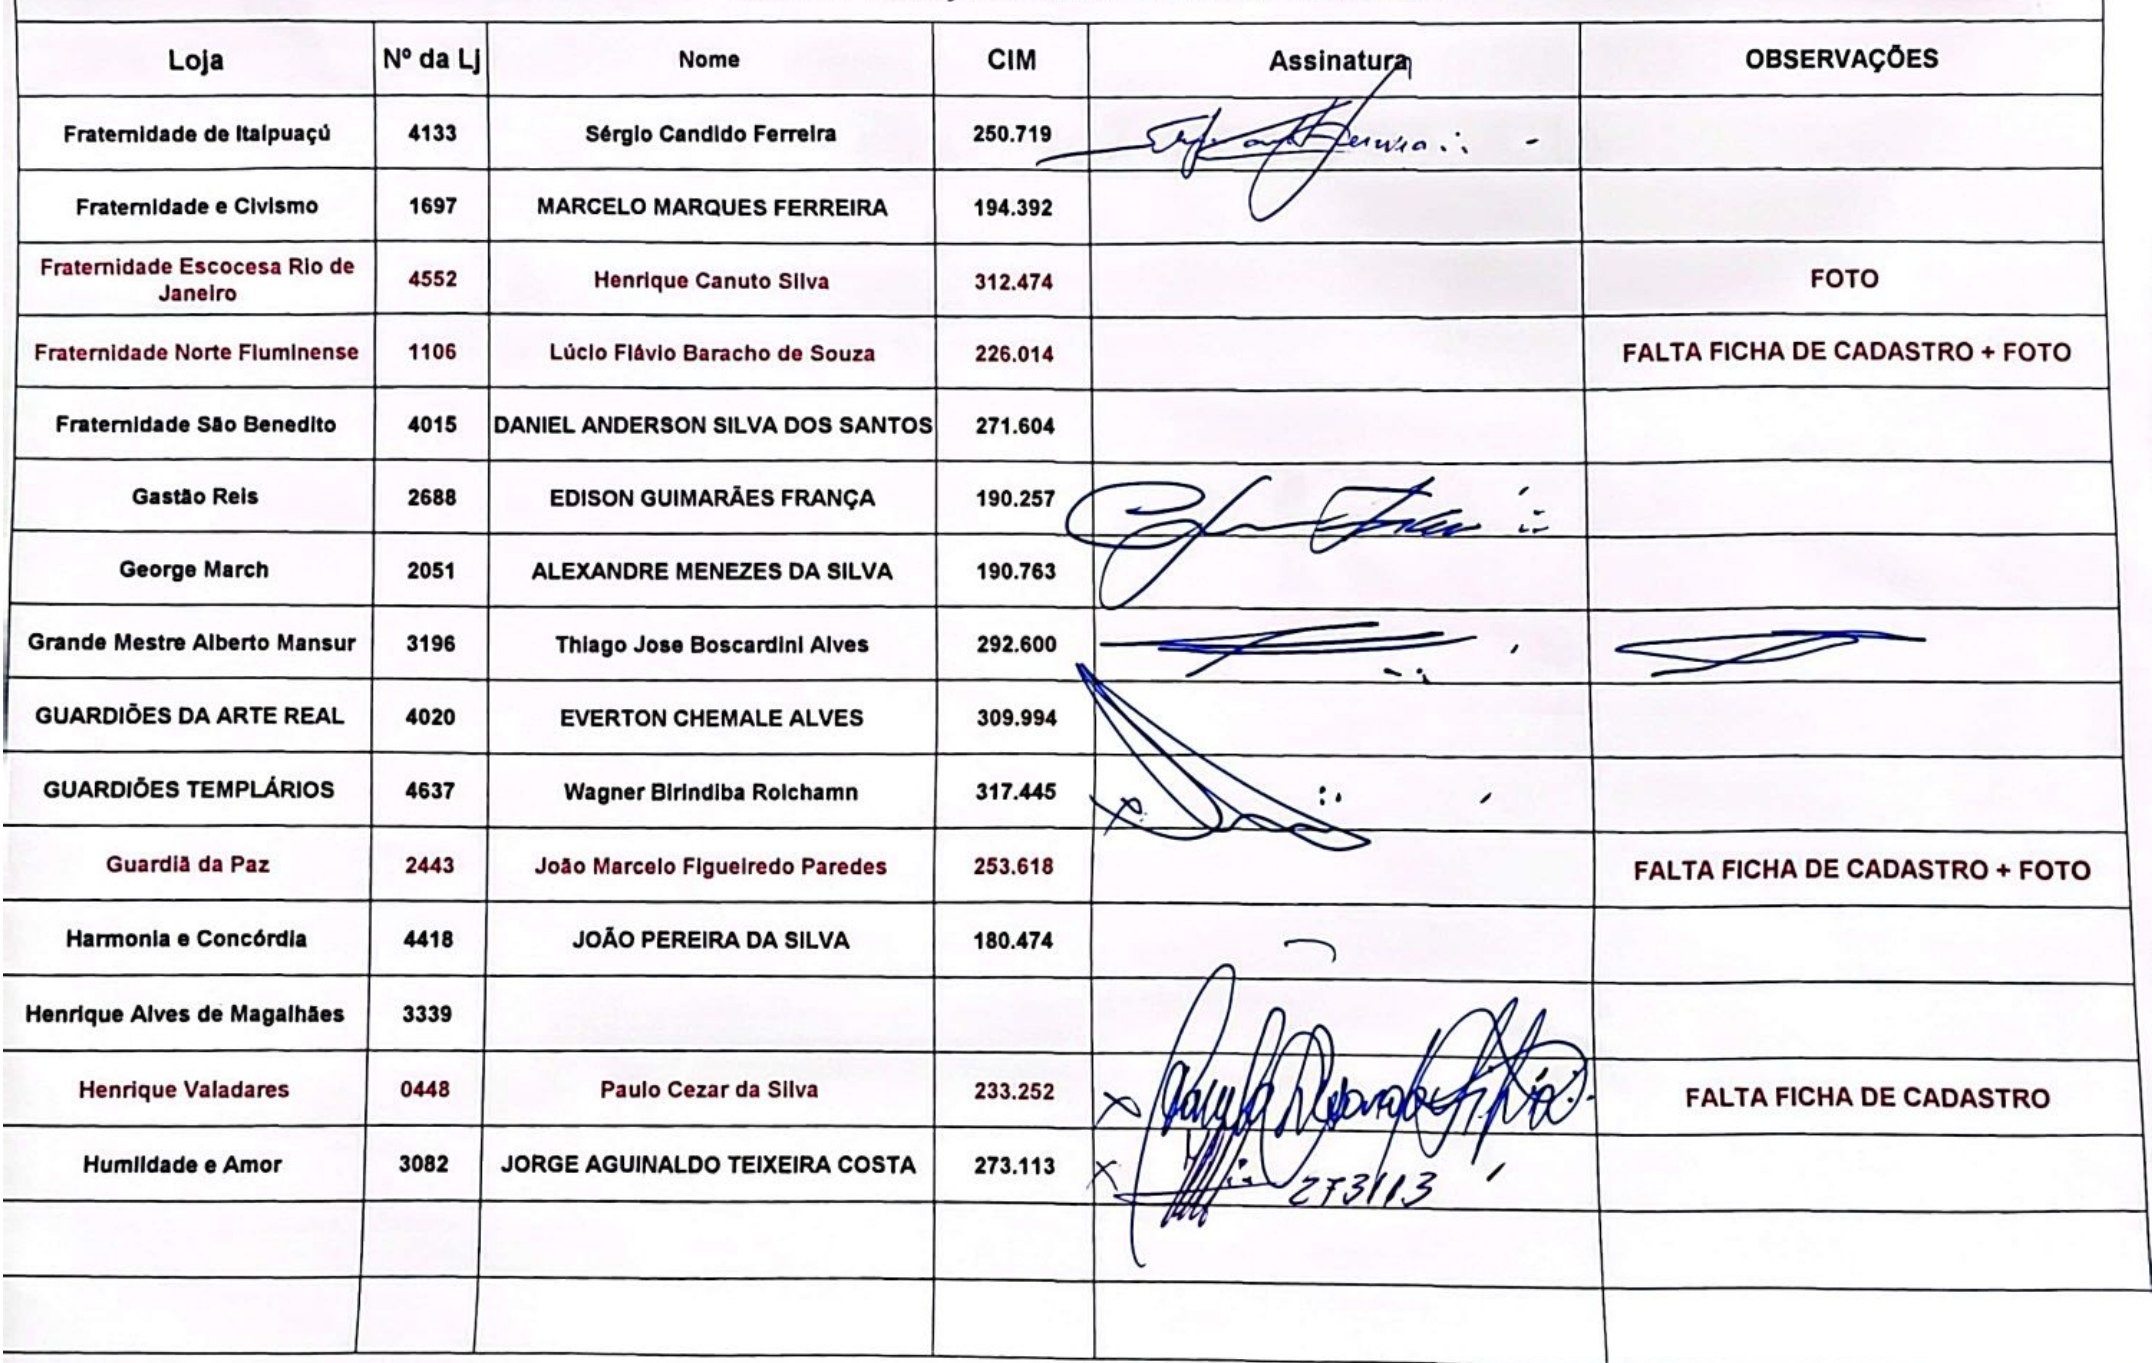 Loja Nº da Lj Nome CIM Assinatura OBSERVAÇÕES
Fraternidade de Itaipuaçú 4133 Sérgio Candido Ferreira 250.719
Fraternidade e Civismo 1697 MARCELO MARQUES FERREIRA 194.392
Fraternidade Escocesa Rio de
Janeiro 4552 Henrique Canuto Silva 312.474 FOTO
Fraternidade Norte Fluminense 1106 Lúcio Flávio Baracho de Souza 226.014 FALTA FICHA DE CADASTRO + FOTO
Fraternidade São Benedito 4015 DANIEL ANDERSON SILVA DOS SANTOS 271.604
Gastão Reis 2688 EDISON GUIMARÃES FRANÇA 190.257
George March 2051 ALEXANDRE MENEZES DA SILVA 190.763
Grande Mestre Alberto Mansur 3196 Thiago Jose Boscardini Alves 292.600
GUARDIÕES DA ARTE REAL 4020 EVERTON CHEMALE ALVES 309.994
GUARDIÕES TEMPLÁRIOS 4637 Wagner Birindiba Roichamn 317.445
Guardiã da Paz 2443 João Marcelo Figueiredo Paredes 253.618 FALTA FICHA DE CADASTRO + FOTO
Harmonia e Concórdia 4418 JOÃO PEREIRA DA SILVA 180.474
Henrique Alves de Magalhães 3339
Henrique Valadares 0448 Paulo Cezar da Silva 233.252 FALTA FICHA DE CADASTRO
Humildade e Amor 3082 JORGE AGUINALDO TEIXEIRA COSTA 273.113 273113